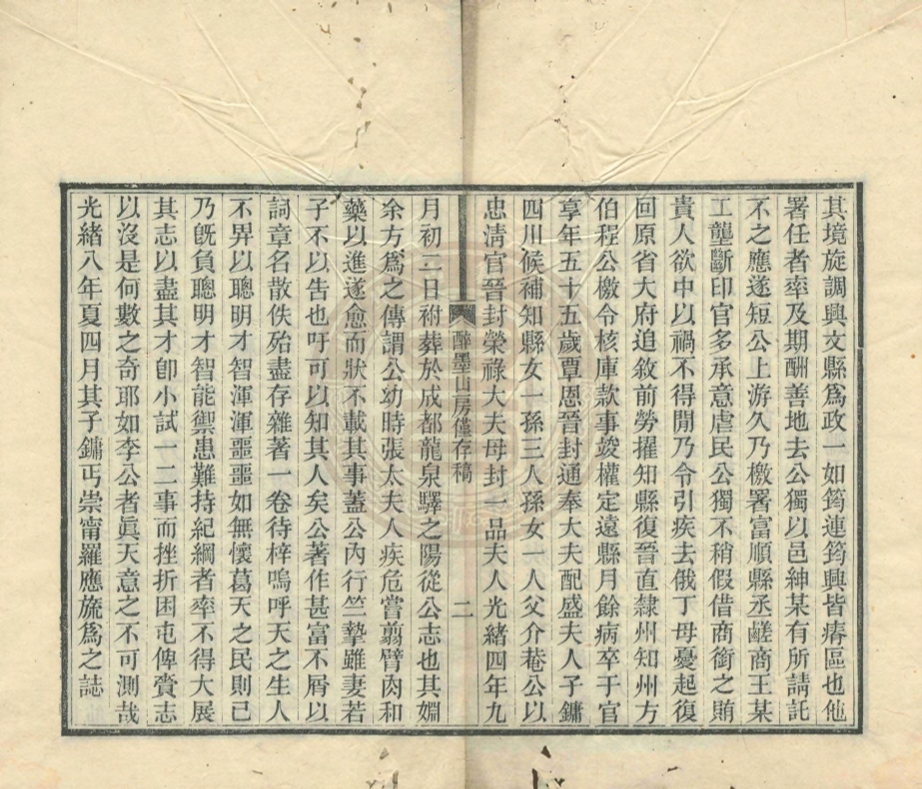 其境旋調興文縣爲政一如筠連筠興皆瘠區也他
署任者率及期酬善地去公獨以邑紳某有所請託
不之應遂短公上游久乃檄署富順縣丞鹺商王某
工壟斷印官多承意虐民公獨不稍假借商銜之賄
貴人欲中以禍不得閒乃令引疾去俄丁母憂起復
回原省大府追敘前勞擢知縣復晉直隸州知州方
伯程公檄令核庫款事竣權定遠縣月餘病卒于官
享年五十五歲覃恩晉封通奉大夫配盛夫人子鏞
四川候補知縣女一孫三人孫女一人父介菴公以
忠清官晉封榮祿大夫母封一品夫人光緒四年九
醉墨山房僅存稿 二
月初二日祔葬於成都龍泉驛之陽從公志也其婣
余方爲之傳謂公幼時張太夫人疾危嘗翦臂肉和
藥以進遂愈而狀不載其事蓋公內行竺摯雖妻若
子不以告也吁可以知其人矣公著作甚富不屑以
詞章名散佚殆盡存雜著一卷待梓嗚呼天之生人
不畀以聰明才智渾渾噩噩如無懷葛天之民則已
乃旣負聰明才智能禦患難持紀綱者率不得大展
其志以盡其才卽小試一二事而挫折困屯俾賷志
以沒是何數之奇耶如李公者眞天意之不可測哉
光緒八年夏四月其子鏞丐崇甯羅應旒爲之誌